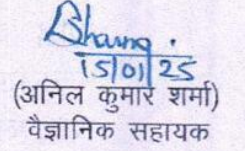 Sharma
15/01/25
(अनिल कुमार शर्मा)
वैज्ञानिक सहायक